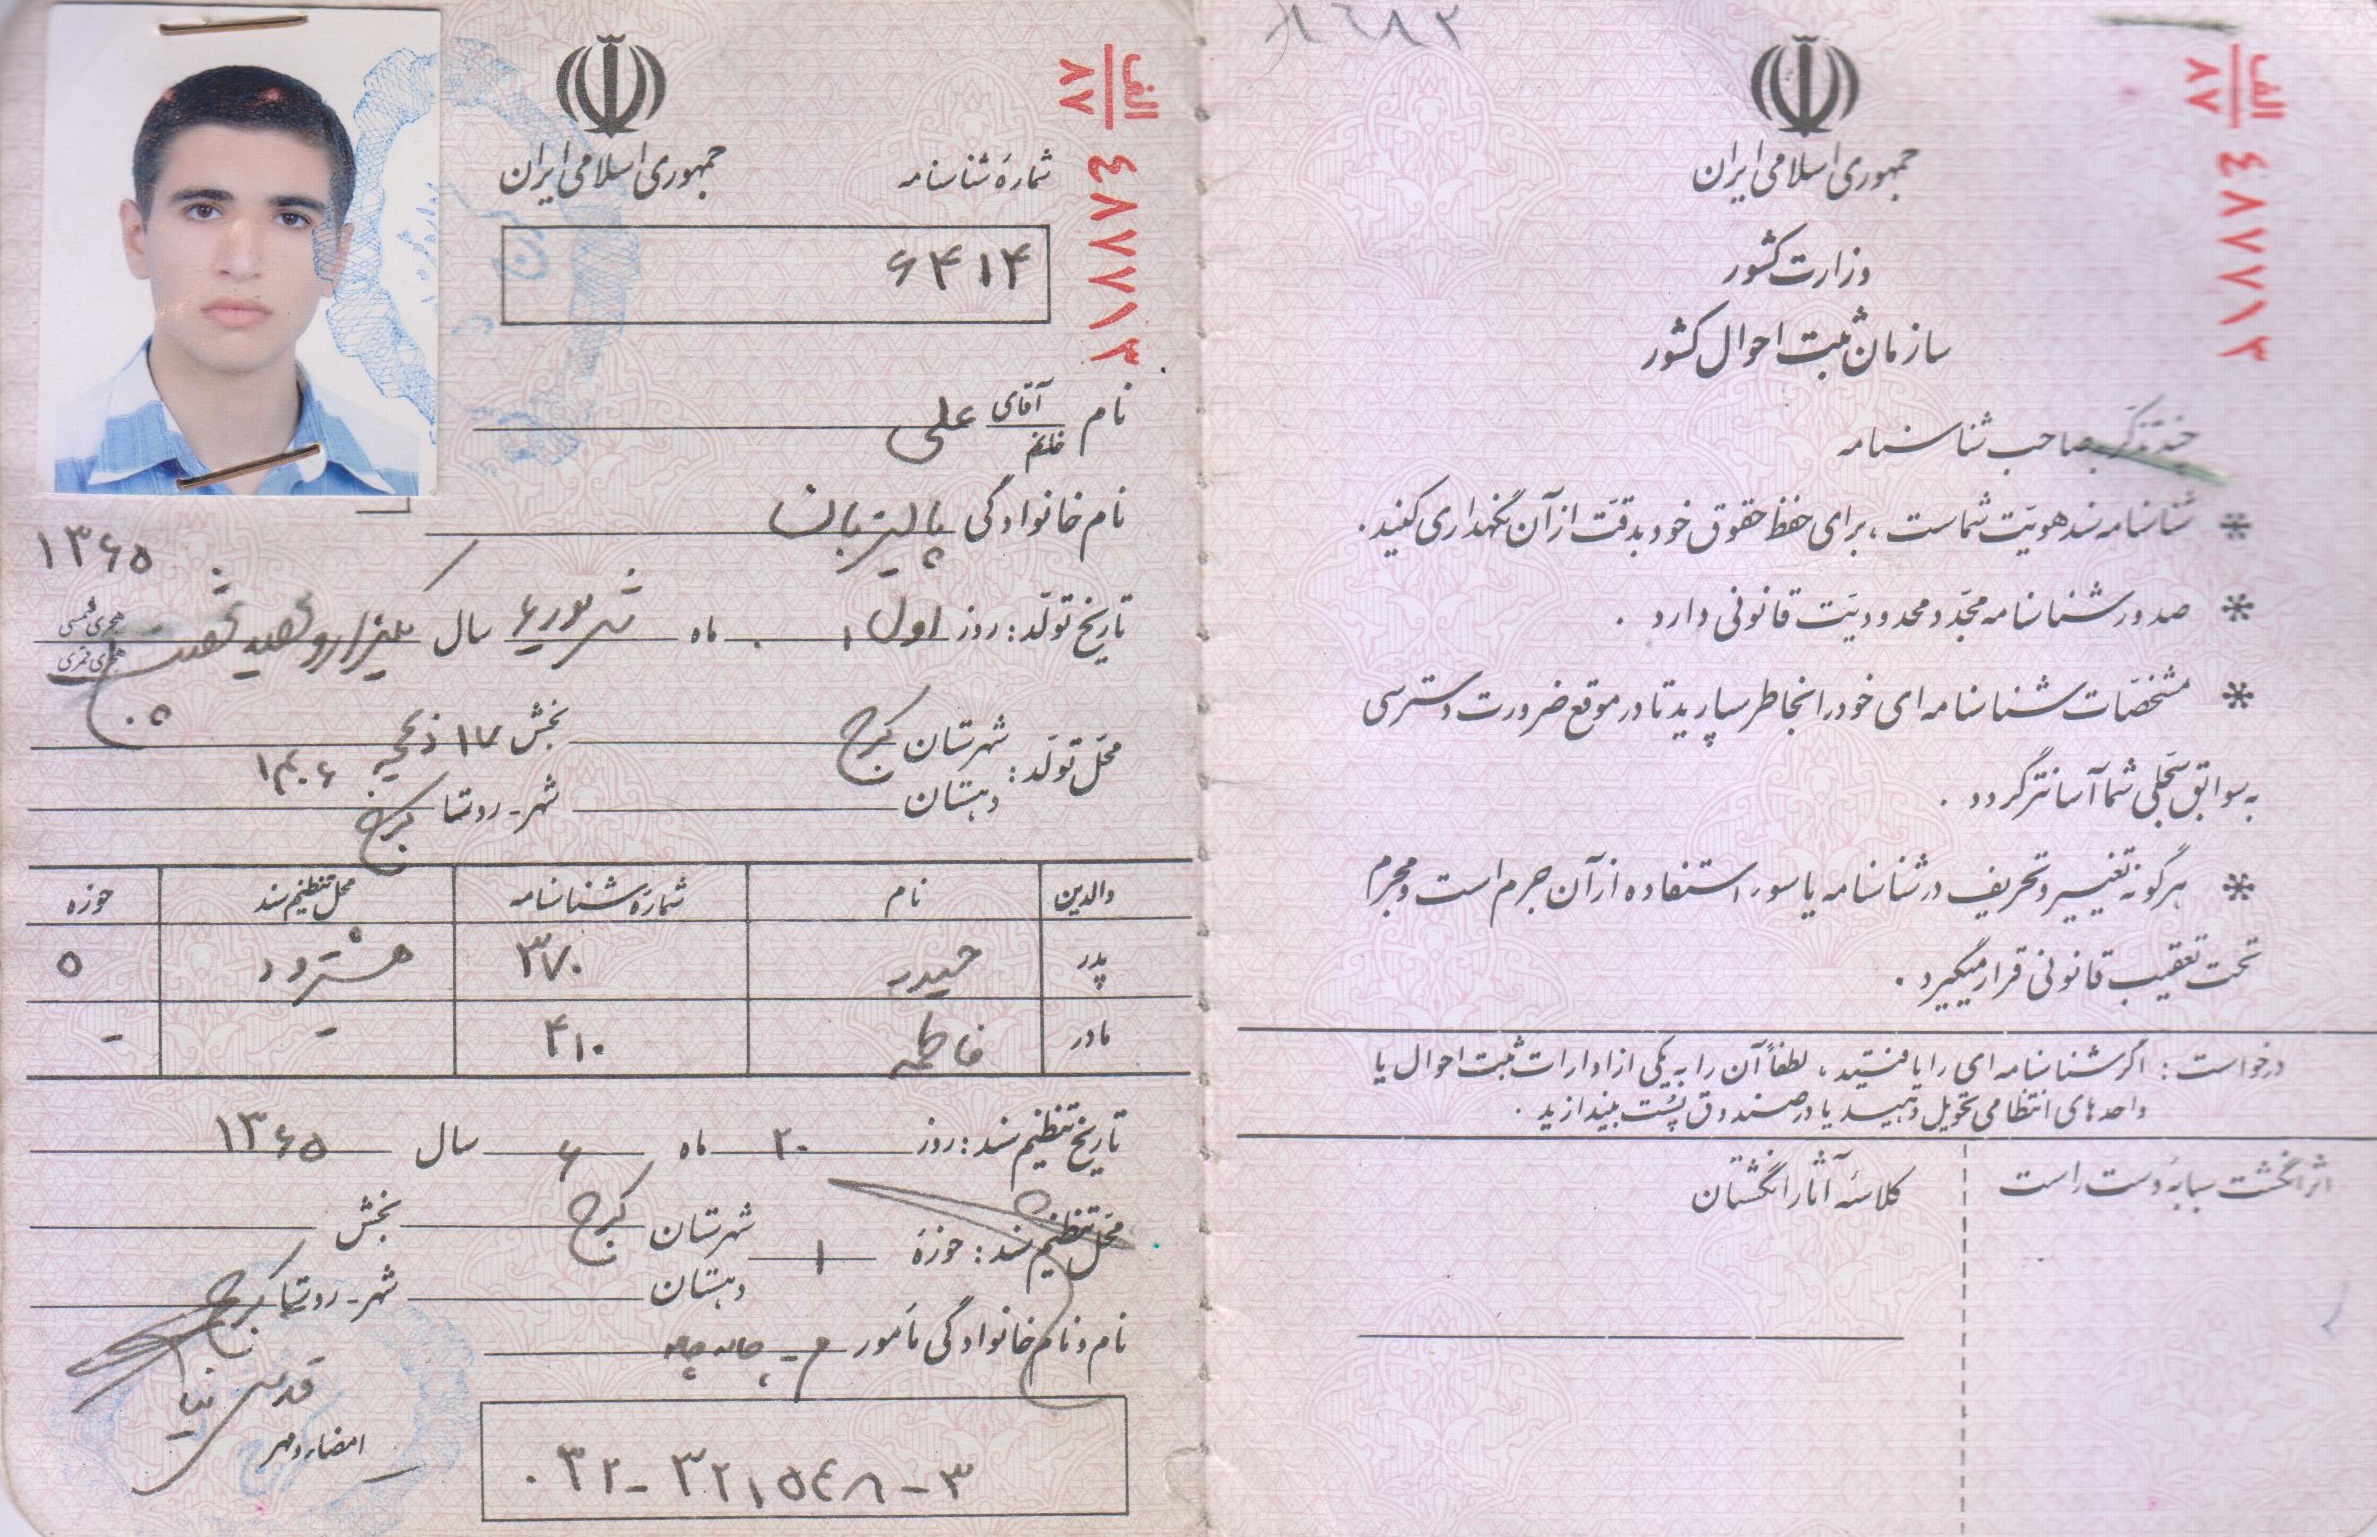 ۸۶۸۲
الف
۸۷
٤٨٧٧١٣
جمهوری اسلامی ایران
وزارت کشور
سازمان ثبت احوال کشور
چند تذکر بصاحب شناسنامه
* شناسنامه سند هویت شماست ، برای حفظ حقوق خود بدقت از آن نگهداری کنید .
* صدور شناسنامه مجدّد محدودیّت قانونی دارد .
* مشخصّات شناسنامه ای خود را بخاطر بسپارید تا در موقع ضرورت دسترسی
به سوابق سجلی شما آسانتر گردد .
* هرگونه تغییر و تحریف در شناسنامه یا سوء استفاده از آن جرم است و مجرم
تحت تعقیب قانونی قرار میگیرد .
درخواست : اگر شناسنامه ای را یافتید ، لطفاً آن را به یکی از ادارات ثبت احوال یا
واحدهای انتظامی تحویل دهید یا در صندوق پست بیندازید .
اثر انگشت سبابه دست راست
کلاسه آثار انگشتان
الف
۸۷
٤٨٧٧١٣
جمهوری اسلامی ایران
شماره شناسنامه
۶۴۱۴
نام آقای خانم علی
نام خانوادگی پالیزبان
۱۳۶۵
تاریخ تولّد : روز اول ۱ ماه شهریور ۶ سال یکهزار و سیصد و شصت
هجری شمسی
هجری قمری
محل تولّد : شهرستان کرج بخش ۱۷ ذیحجه ۱۴۰۶
دهستان شهر - روستا کرج
والدین نام شماره شناسنامه محل تنظیم سند حوزه
پدر حیدر ۳۷۰ هشترود ۵
مادر فاطمه ۴۱۰ - -
تاریخ تنظیم سند : روز ۲۰ ماه ۶ سال ۱۳۶۵
محل تنظیم سند : حوزه ۱ شهرستان کرج بخش
دهستان شهر - روستا کرج
نام و نام خانوادگی مأمور م -
امضاء و مهر
۰۳۲-۳۲۱۵٤۸-۳